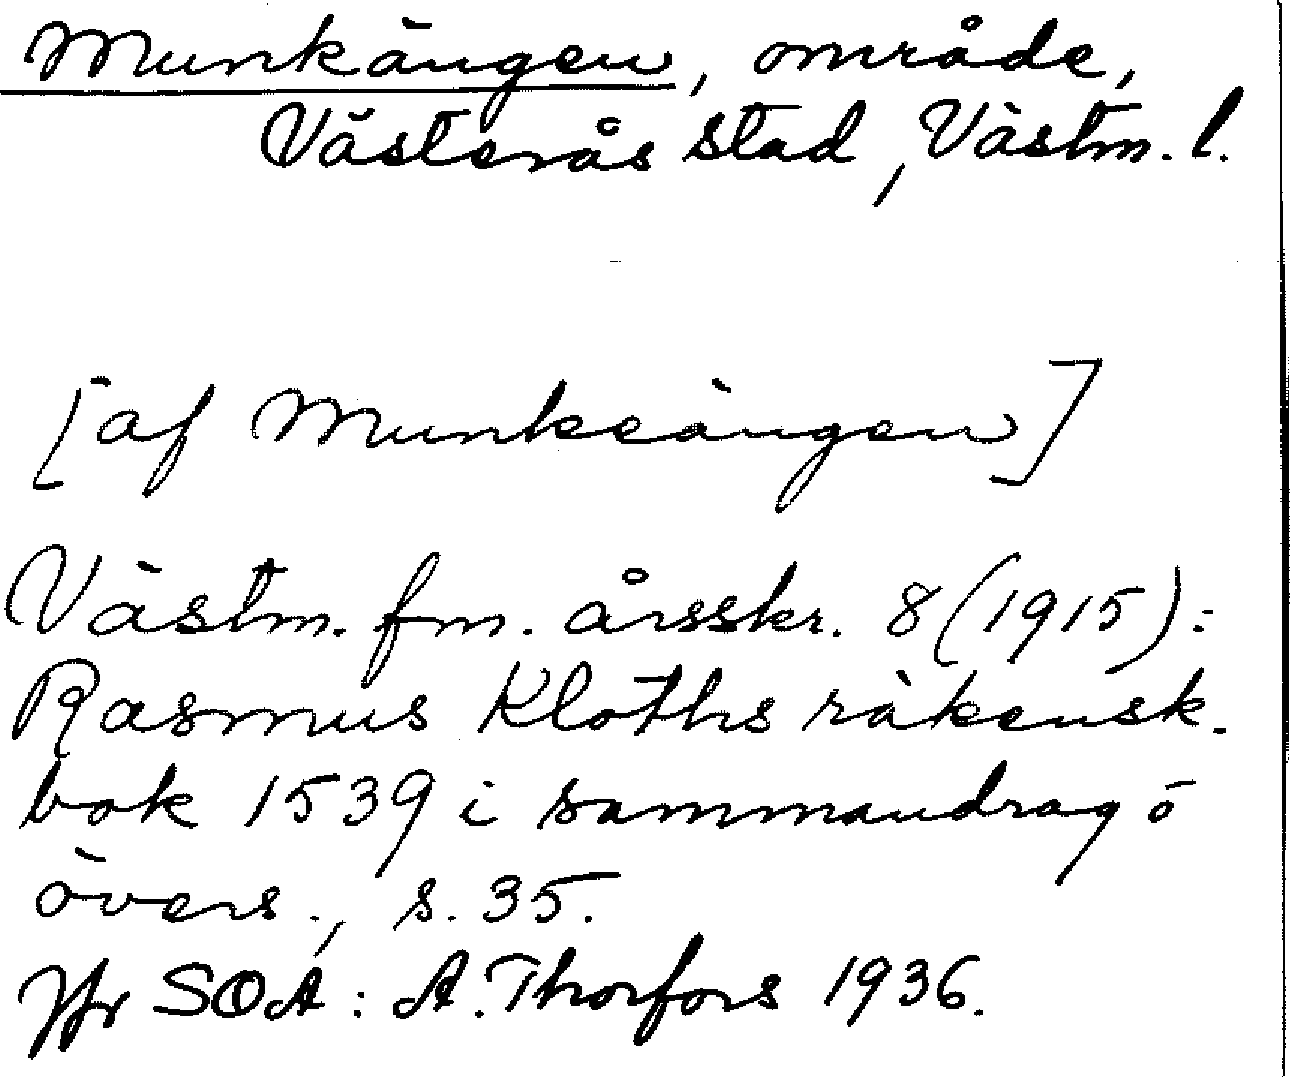 Munkängen, område,
Västerås stad, Västm. l.
[af Munkeängen]
Västm. fm. årsskr. 8 (1915):
Rasmus Kloths räkensk.
bok 1539 i sammandrag o
övers., s. 35.
Jfr SOA: A. Thorfors 1936.